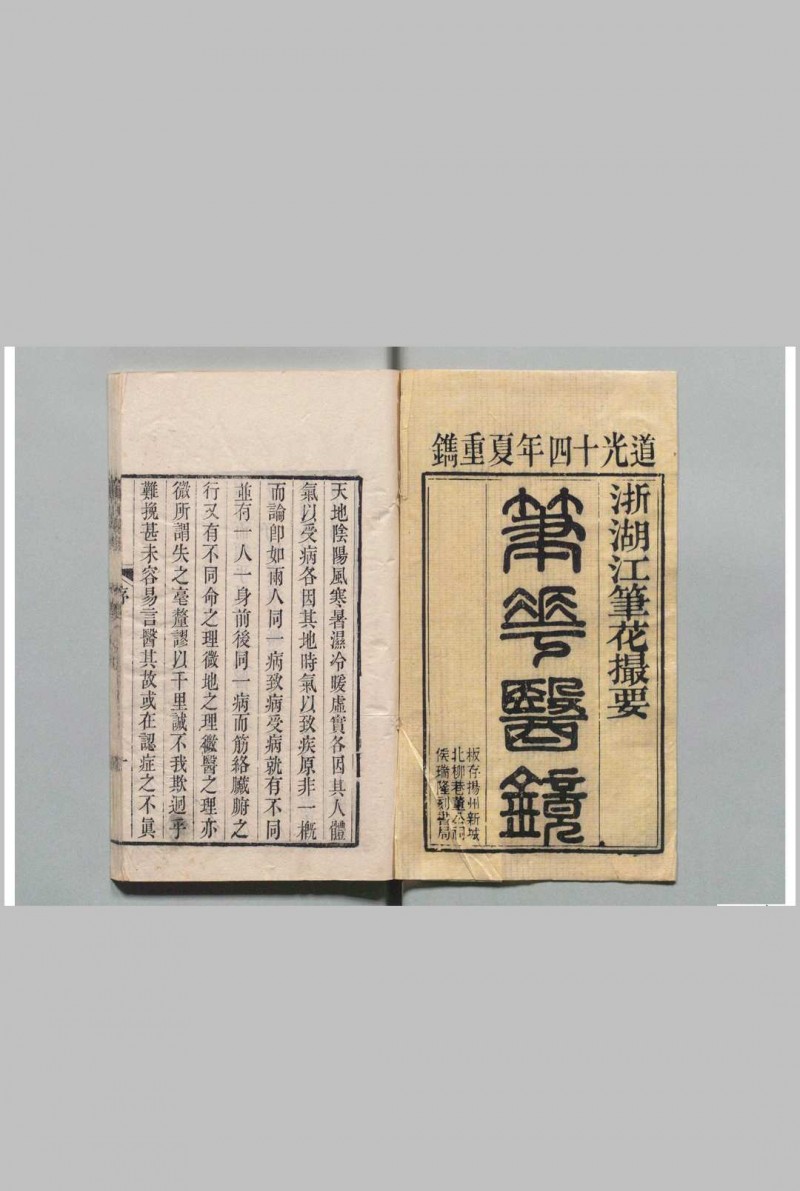 道光十四年夏重鐫
浙湖江筆花撮要
筆花醫鏡
板存揚州新城
北柳巷董公祠
侯瑞隆刻書局
天地陰陽風寒暑濕冷暖虛實各因其人體
氣以受病各因其地時氣以致疾原非一概
而論卽如兩人同一病致病受病就有不同
並有一人一身前後同一病而筋絡臟腑之
行又有不同命之理微地之理微醫之理亦
微所謂失之毫釐謬以千里誠不我欺迴乎
難挽甚未容易言醫其故或在認症之不眞
序
一